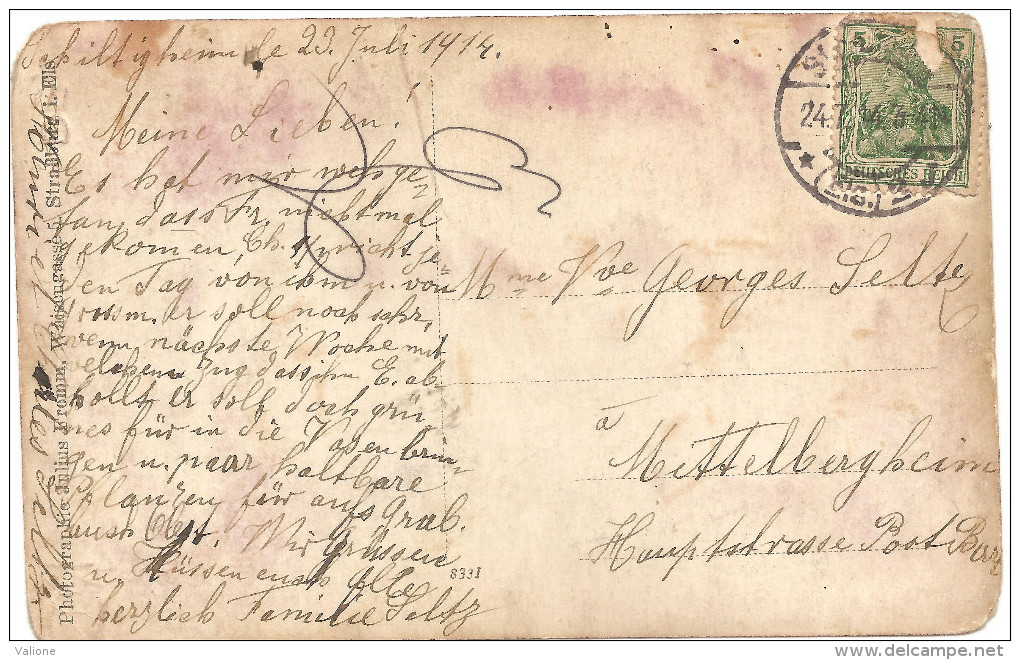 Schiltigheim de 23. Juli 1914.
Meine Lieben!
Es hat mir wehge-
tan, dass Er nicht mal
gekomen, Ch. spricht je-
den Tag von ihm u. von
Grossm. er soll noch schr,
wenn nächste Woche mit
welchem Zug dass ihn E. ab-
hollt er soll doch grü-
nes für in die Vasen brin-
gen u. paar haltbare
Pflanzen für aufs Grab.
auch Obst. Wir Grüssen
u. Küssen euch Alle
herzlich Familie Seltz
Photographie Julius Fromm, Waisengasse 5, Straßburg i. Els.
8331
5 5
DEUTSCHES REICH
24.
(Els.)
Mme Vve Georges Seltz
à
Mittelbergheim
Hauptstrasse Post Barr
Valione
delcampe.net